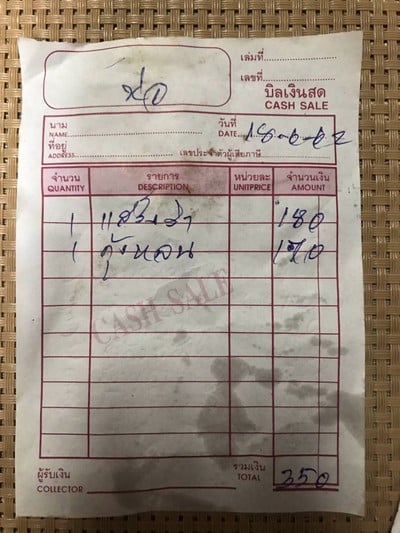 เล่มที่
เลขที่
บิลเงินสด
CASH SALE
นาม
NAME
วันที่
DATE 18-6-62
ที่อยู่
ADDRESS
เลขประจำตัวผู้เสียภาษี
จำนวน รายการ หน่วยละ จำนวนเงิน
QUANTITY DESCRIPTION UNITPRICE AMOUNT
1 180
1 กุ้งหลน 170
CASH SALE
ผู้รับเงิน รวมเงิน
COLLECTOR TOTAL 350